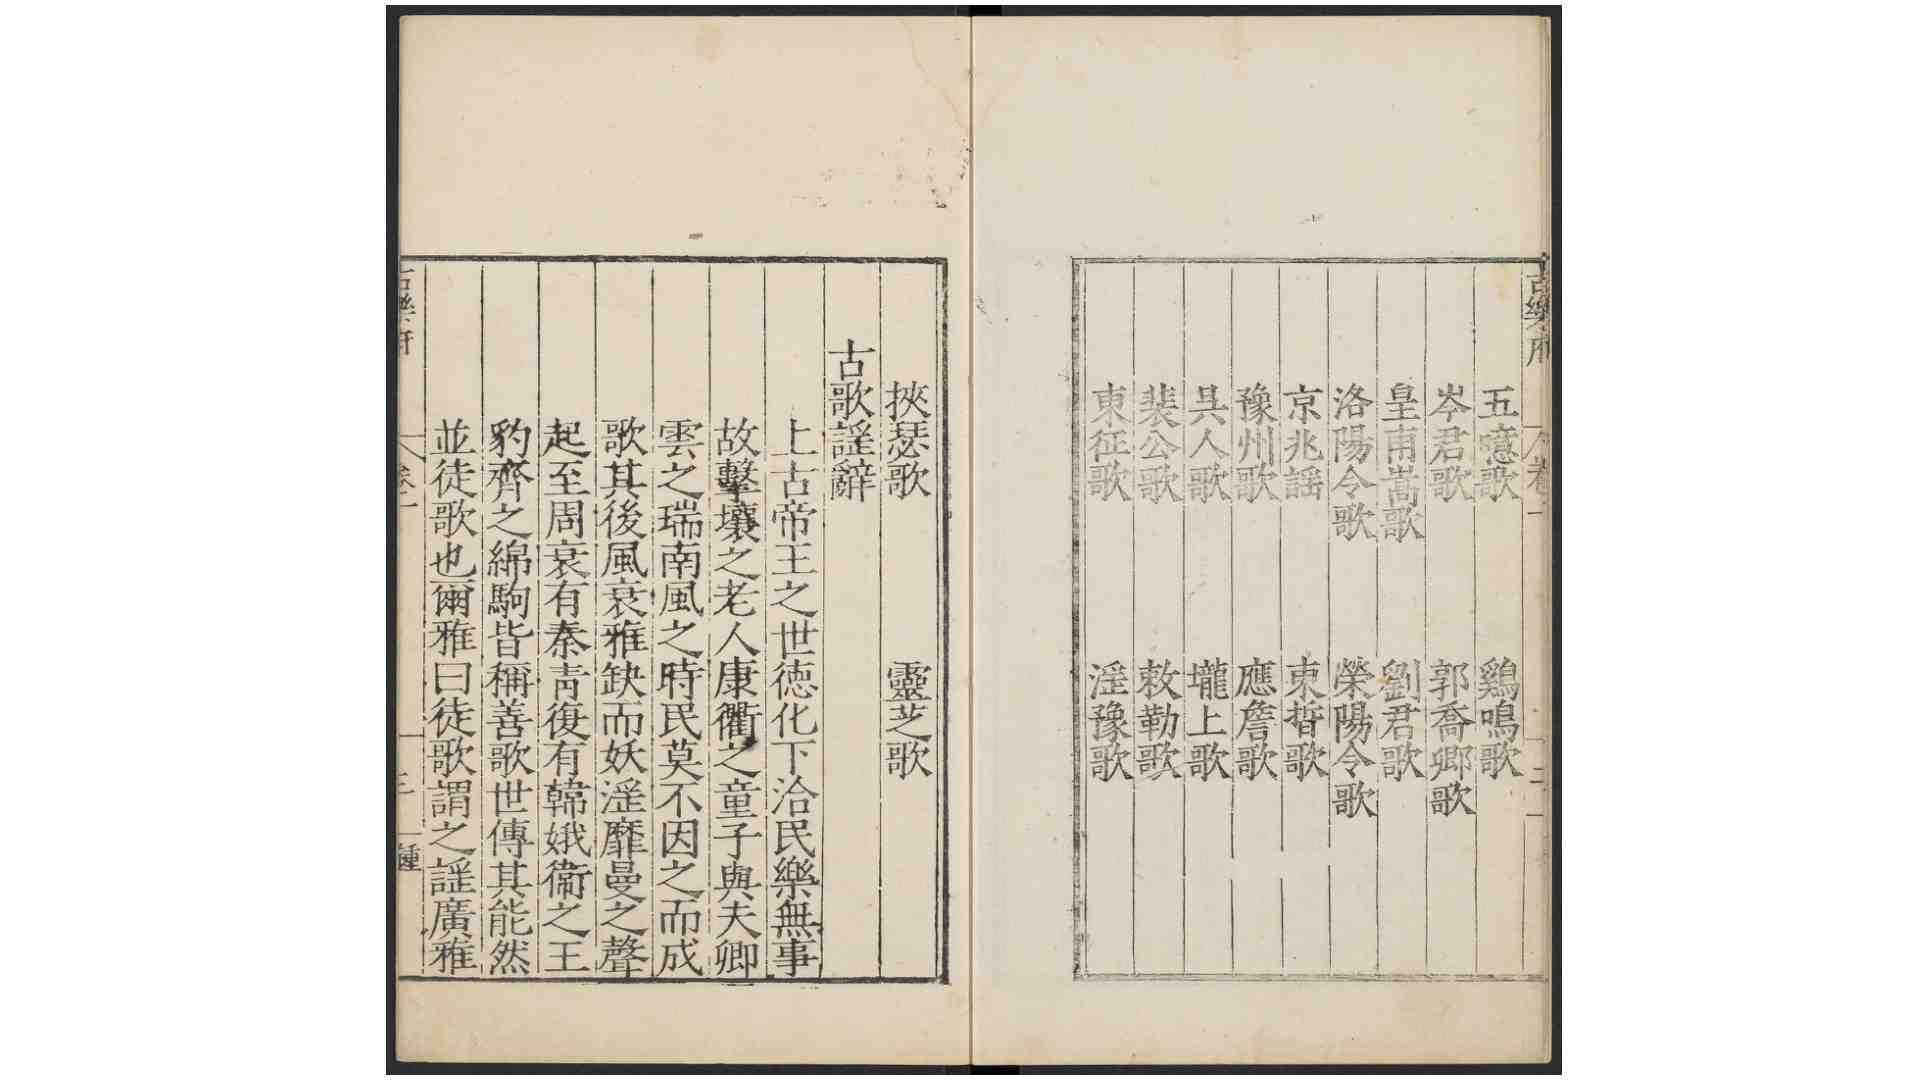 古樂府
卷一
二
五噫歌 鷄鳴歌
岑君歌 郭喬卿歌
皇甫嵩歌 劉君歌
洛陽令歌 滎陽令歌
京兆謡 東晳歌
豫州歌 應詹歌
吳人歌 壠上歌
裴公歌 敕勒歌
東征歌 淫豫歌
挾瑟歌 靈芝歌
古歌謡辭
上古帝王之世徳化下洽民樂無事
故擊壤之老人康衢之童子與夫卿
雲之瑞南風之時民莫不因之而成
歌其後風衰雅缺而妖淫靡曼之聲
起至周衰有秦青復有韓娥衞之王
豹齊之綿駒皆稱善歌世傳其能然
並徒歌也爾雅曰徒歌謂之謡廣雅
古樂府
卷一
三
鍾